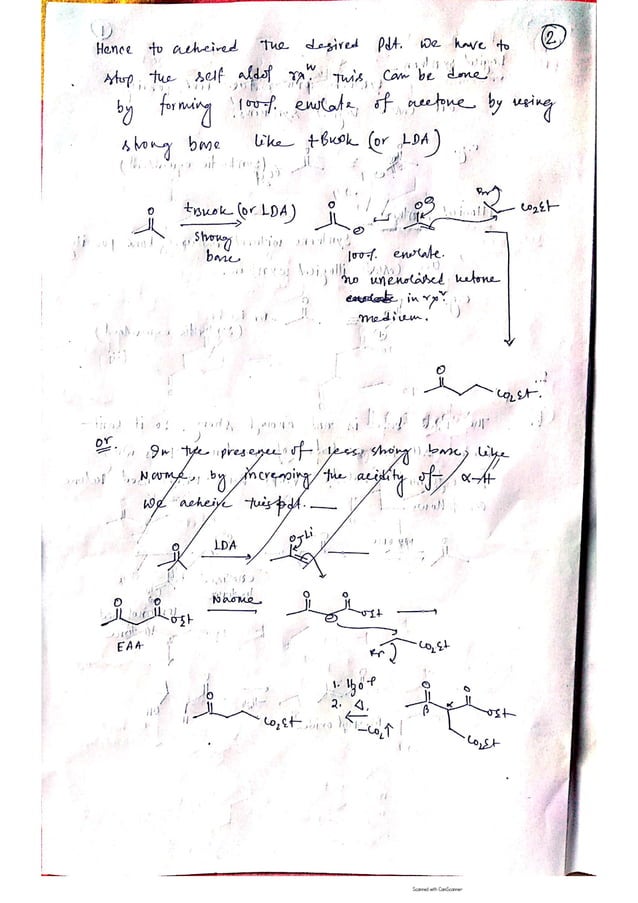 (1)
②
Hence to acheired the desired Pdt. we have to
stop the self aldol rxⁿ. This can be done
by forming 100% enolate of acetone by using
strong base like tBuOK (or LDA)
O tBuOK (or LDA) O O⊖ Br CO₂Et
strong
base
100% enolate.
no unenolaised ketone
in rxⁿ.
medium.
O
CO₂Et
or In the presence of less strong base, like
NaOMe, by increasing the acidity of α-H
we acheive this pdt.
O LDA O Li
O O OEt NaOMe O O OEt
EAA
Br CO₂Et
O CO₂Et 1. H₃O⊕ O O OEt
2. Δ. β α
-CO₂↑ CO₂Et
Scanned with CamScanner